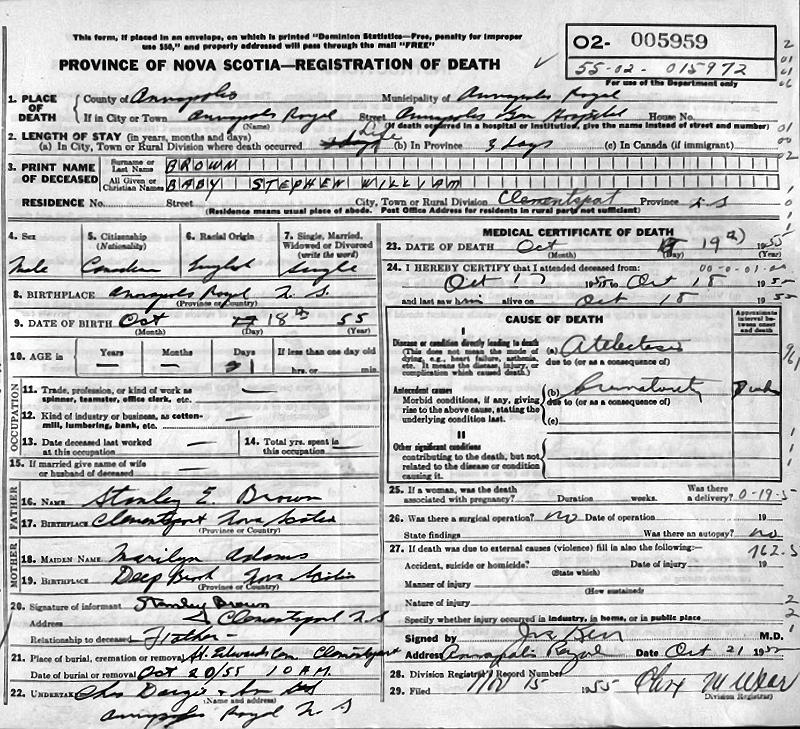 This form, if placed in an envelope, on which is printed "Dominion Statistics—Free, penalty for improper
use $50," and properly addressed will pass through the mail "FREE"
PROVINCE OF NOVA SCOTIA—REGISTRATION OF DEATH
02- 005959
55-02-015972
For use of the Department only
1. PLACE OF DEATH
County of Annapolis Municipality of Annapolis Royal
If in City or Town Annapolis Royal Street Annapolis Gen Hospital House No.
(Name) (If death occurred in a hospital or institution, give the name instead of street and number)
2. LENGTH OF STAY (in years, months and days)
(a) In City, Town or Rural Division where death occurred Life (b) In Province 3 days (c) In Canada (if immigrant)
3. PRINT NAME OF DECEASED
Surname or Last Name BROWN
All Given or Christian Names BABY STEPHEN WILLIAM
RESIDENCE No. Street City, Town or Rural Division Clementsport Province N S
(Residence means usual place of abode. Post Office Address for residents in rural parts not sufficient)
4. Sex Male
5. Citizenship (Nationality) Canadian
6. Racial Origin English
7. Single, Married, Widowed or Divorced (write the word) Single
8. BIRTHPLACE Annapolis Royal N. S.
(Province or Country)
9. DATE OF BIRTH Oct 18th 55
(Month) (Day) (Year)
10. AGE in Years — Months — Days 1 If less than one day old hrs. or min.
OCCUPATION
11. Trade, profession, or kind of work as spinner, teamster, office clerk, etc. —
12. Kind of industry or business, as cotton-mill, lumbering, bank, etc. —
13. Date deceased last worked at this occupation —
14. Total yrs. spent in this occupation —
15. If married give name of wife or husband of deceased —
FATHER
16. NAME Stanley E Brown
17. BIRTHPLACE Clementsport Nova Scotia
(Province or Country)
MOTHER
18. MAIDEN NAME Marilyn Adams
19. BIRTHPLACE Deep Brook Nova Scotia
(Province or Country)
20. Signature of informant Stanley Brown
Address Clementsport N S
Relationship to deceased Father
21. Place of burial, cremation or removal St. Edwards Cem. Clementsport
Date of burial or removal Oct 20/55 10 A.M.
22. UNDERTAKER
(Name and address)
Annapolis Royal N S
MEDICAL CERTIFICATE OF DEATH
23. DATE OF DEATH Oct 19th 1955
(Month) (Day) (Year)
24. I HEREBY CERTIFY that I attended deceased from:
Oct 17 1955 to Oct 18 1955
and last saw him alive on Oct 18 1955
CAUSE OF DEATH
Approximate interval between onset and death
I
Disease or condition directly leading to death
(This does not mean the mode of dying, e.g., heart failure, asthenia, etc. It means the disease, injury, or complication which caused death.)
(a) Atelectasis
due to (or as a consequence of)
Antecedent causes
Morbid conditions, if any, giving rise to the above cause, stating the underlying condition last.
(b) Prematurity
due to (or as a consequence of)
(c)
II
Other significant conditions
contributing to the death, but not related to the disease or condition causing it.
25. If a woman, was the death associated with pregnancy? Duration weeks. Was there a delivery? 0-19-5
26. Was there a surgical operation? no Date of operation 19
State findings Was there an autopsy? no
27. If death was due to external causes (violence) fill in also the following:— 762.5
Accident, suicide or homicide? Date of injury 19
(State which)
Manner of injury
(How sustained)
Nature of injury
Specify whether injury occurred in industry, in home, or in public place
Signed by M.D.
Address Annapolis Royal Date Oct 21 1955
28. Division Registrar's Record Number
29. Filed Nov 15 1955
Division Registrar